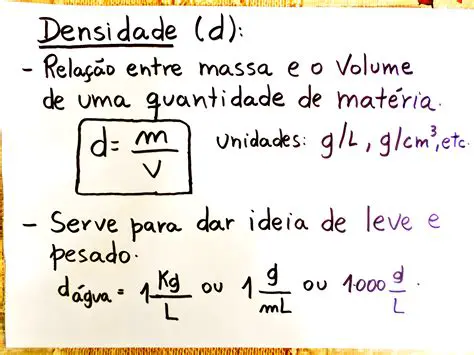 Densidade (d):
- Relação entre massa e o Volume
de uma quantidade de matéria.
d = m/V Unidades: g/L, g/cm³, etc.
- Serve para dar ideia de leve e
pesado.
dágua = 1 Kg/L ou 1 g/mL ou 1.000 g/L.